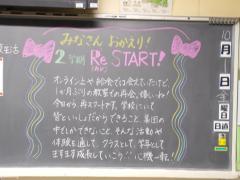 みなさん おかえり!
2学期 Re START!
オンライン上や給食では会えていたけど、
1か月ぶりの教室での再会、嬉しいね!
今日から再スタートです。学校にいて
皆といっしょだからできること、集団の
中でしかできないこと、そんな活動や
体験を通して、クラスとして、学年として
ますます成長していこう。心機一転!
10
月
日
曜日
日直